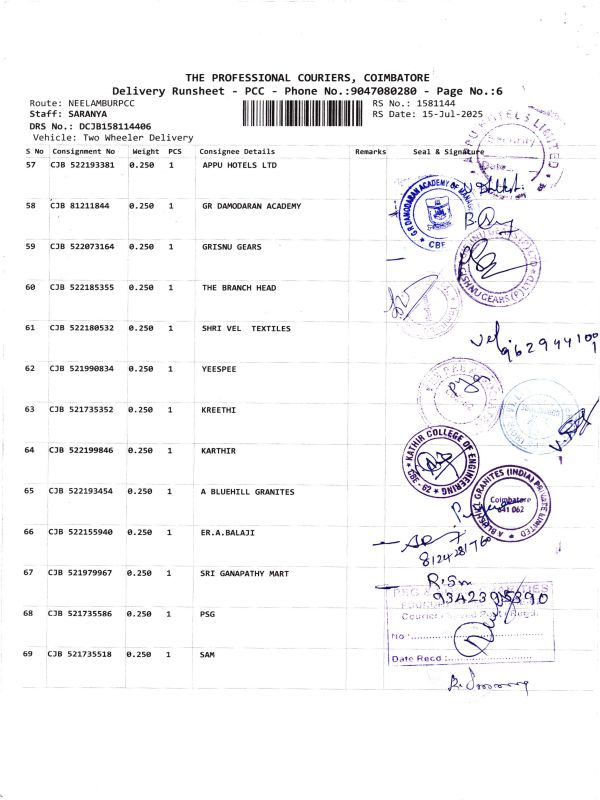 THE PROFESSIONAL COURIERS, COIMBATORE
Delivery Runsheet - PCC - Phone No.:9047080280 - Page No.:6
Route: NEELAMBURPCC
Staff: SARANYA
DRS No.: DCJB158114406
Vehicle: Two Wheeler Delivery
RS No.: 1581144
RS Date: 15-Jul-2025
S No Consignment No Weight PCS Consignee Details Remarks Seal & Signature
57 CJB 522193381 0.250 1 APPU HOTELS LTD
APPU HOTELS LIMITED
Security
Date
58 CJB 81211844 0.250 1 GR DAMODARAN ACADEMY
CBE
59 CJB 522073164 0.250 1 GRISNU GEARS
GEARS (P) LTD
60 CJB 522185355 0.250 1 THE BRANCH HEAD
61 CJB 522180532 0.250 1 SHRI VEL TEXTILES
62 CJB 521990834 0.250 1 YEESPEE
63 CJB 521735352 0.250 1 KREETHI
64 CJB 522199846 0.250 1 KARTHIR
KATHIR COLLEGE OF ENGINEERING
CBE - 62
65 CJB 522193454 0.250 1 A BLUEHILL GRANITES
GRANITES (INDIA) PRIVATE LIMITED
Coimbatore
641 062
66 CJB 522155940 0.250 1 ER.A.BALAJI
67 CJB 521979967 0.250 1 SRI GANAPATHY MART
68 CJB 521735586 0.250 1 PSG
No :
Date Recd :
69 CJB 521735518 0.250 1 SAM